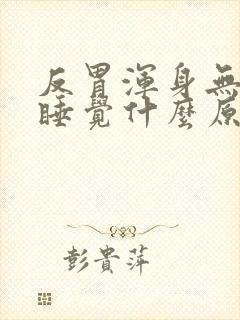 反胃渾身無
睡覺什麼原
彭貴萍